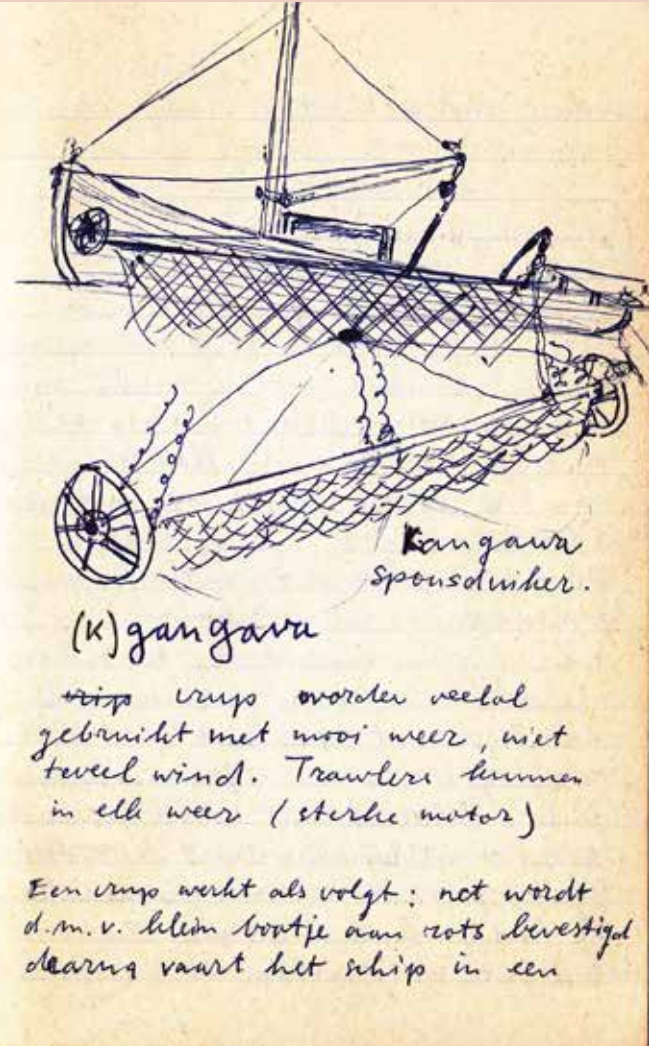 Kangawa
Sponsduiker.
(K)gangava
vrip vrup worden veelal
gebruikt met mooi weer, niet
teveel wind. Trawlers kunnen
in elk weer (sterke motor)
Een vrup werkt als volgt: net wordt
d.m.v. klein bootje aan rots bevestigd
daarna vaart het schip in een